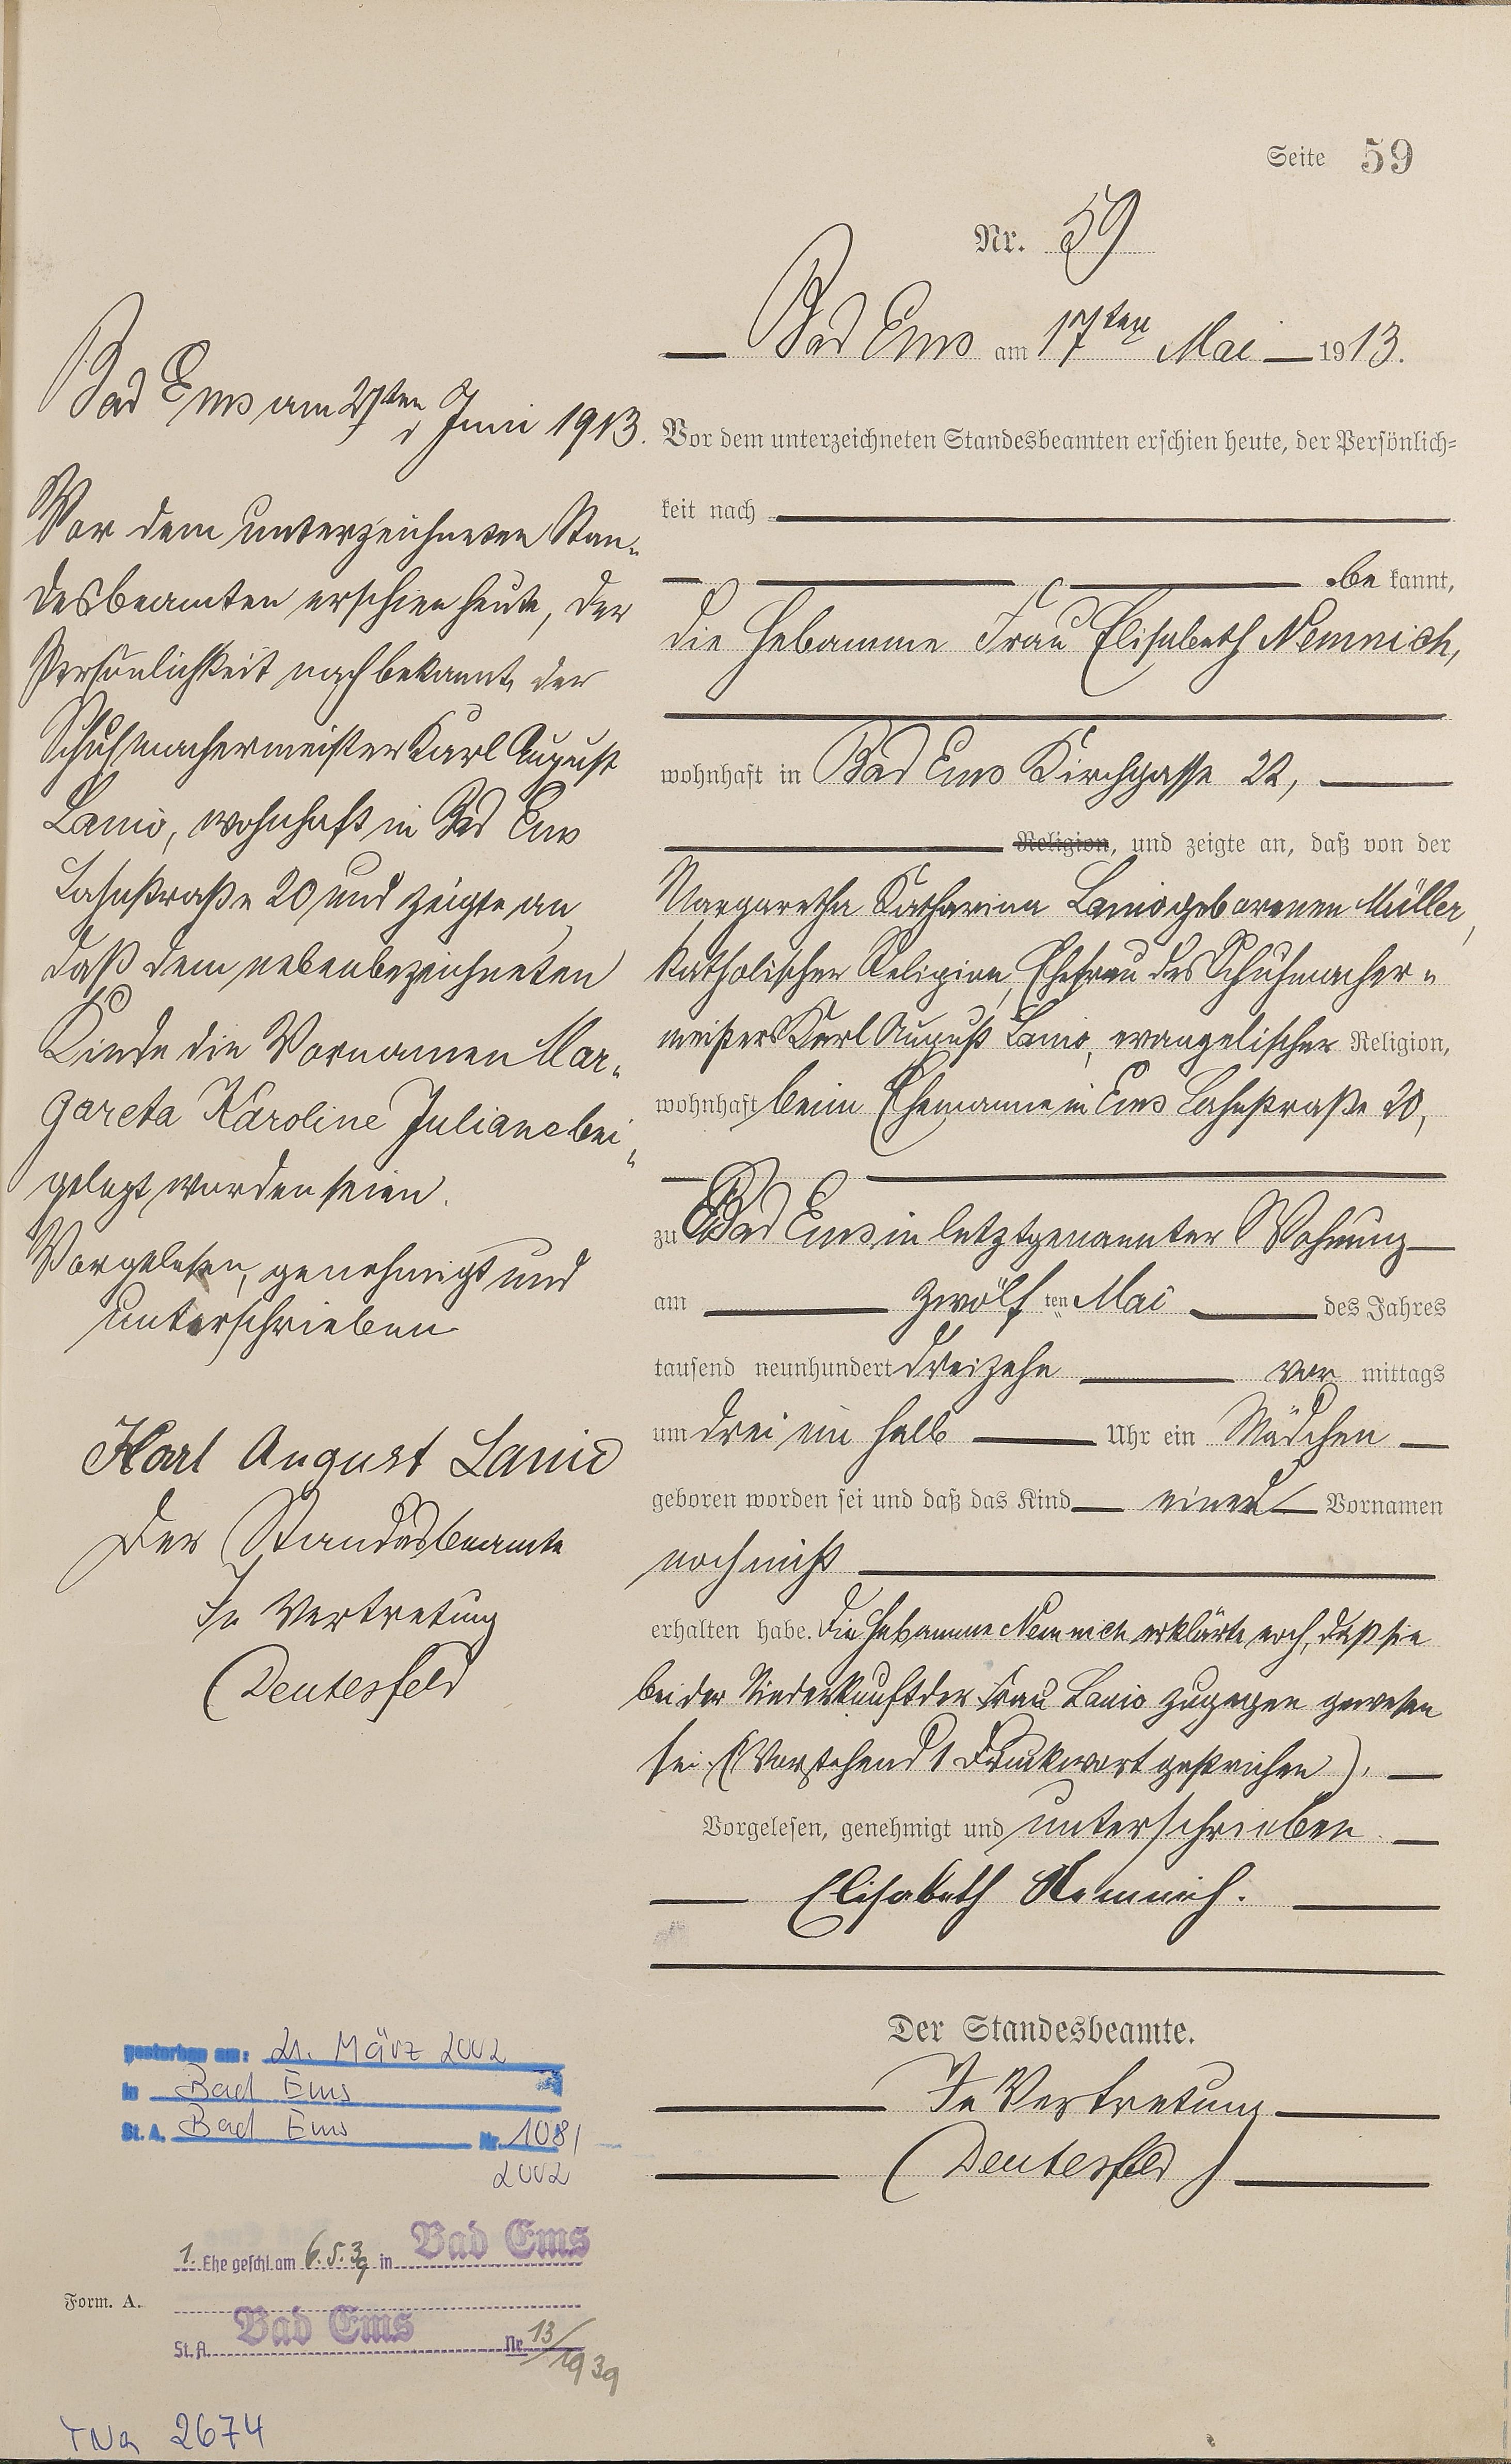 Seite 59
Nr. 59
Bad Ems am 17ten Mai 1913.
Vor dem unterzeichneten Standesbeamten erschien heute, der Persönlich=
keit nach
be kannt,
die Hebamme Frau Elisabeth Nemnich,
wohnhaft in Bad Ems Kirchgasse 22,
Religion, und zeigte an, daß von der
Margaretha Katharina Lanio geborenen Müller,
katholischer Religion, Ehefrau des Schuhmacher=
meisters Karl August Lanio, evangelischer Religion,
wohnhaft beim Ehemanne in Ems Lahnstraße 20,
zu Bad Ems in letztgenannter Wohnung
am zwölf ten Mai des Jahres
tausend neunhundert dreizehn vor mittags
um drei ein halb Uhr ein Mädchen
geboren worden sei und daß das Kind einen Vornamen
noch nicht
erhalten habe. Die Hebamme Nemnich erklärte noch, daß sie
bei der Niederkunft der Frau Lanio zugegen gewesen
sei. (Vorstehend 1 Druckwort gestrichen).
Vorgelesen, genehmigt und unterschrieben.
Elisabeth Nemnich.
Der Standesbeamte.
In Vertretung
(Deutesfeld)
Bad Ems am 27ten Juni 1913.
Vor dem unterzeichneten Stan=
desbeamten erschien heute, der
Persönlichkeit nach bekannt, der
Schuhmachermeister Karl August
Lanio, wohnhaft in Bad Ems
Lahnstraße 20 und zeigte an
daß dem nebenbezeichneten
Kinde die Vornamen Mar=
gareta Karoline Juliane bei=
gelegt worden seien.
Vorgelesen, genehmigt und
unterschrieben
Karl August Lanio
Der Standesbeamte
In Vertretung
(Deutesfeld
gestorben am: 21. März 2002
in Bad Ems
St. A. Bad Ems Nr. 108/
2002
1. Ehe geschl. am 6.5.39 in Bad Ems
Form. A.
St. A. Bad Ems Nr. 13/
1939
2674